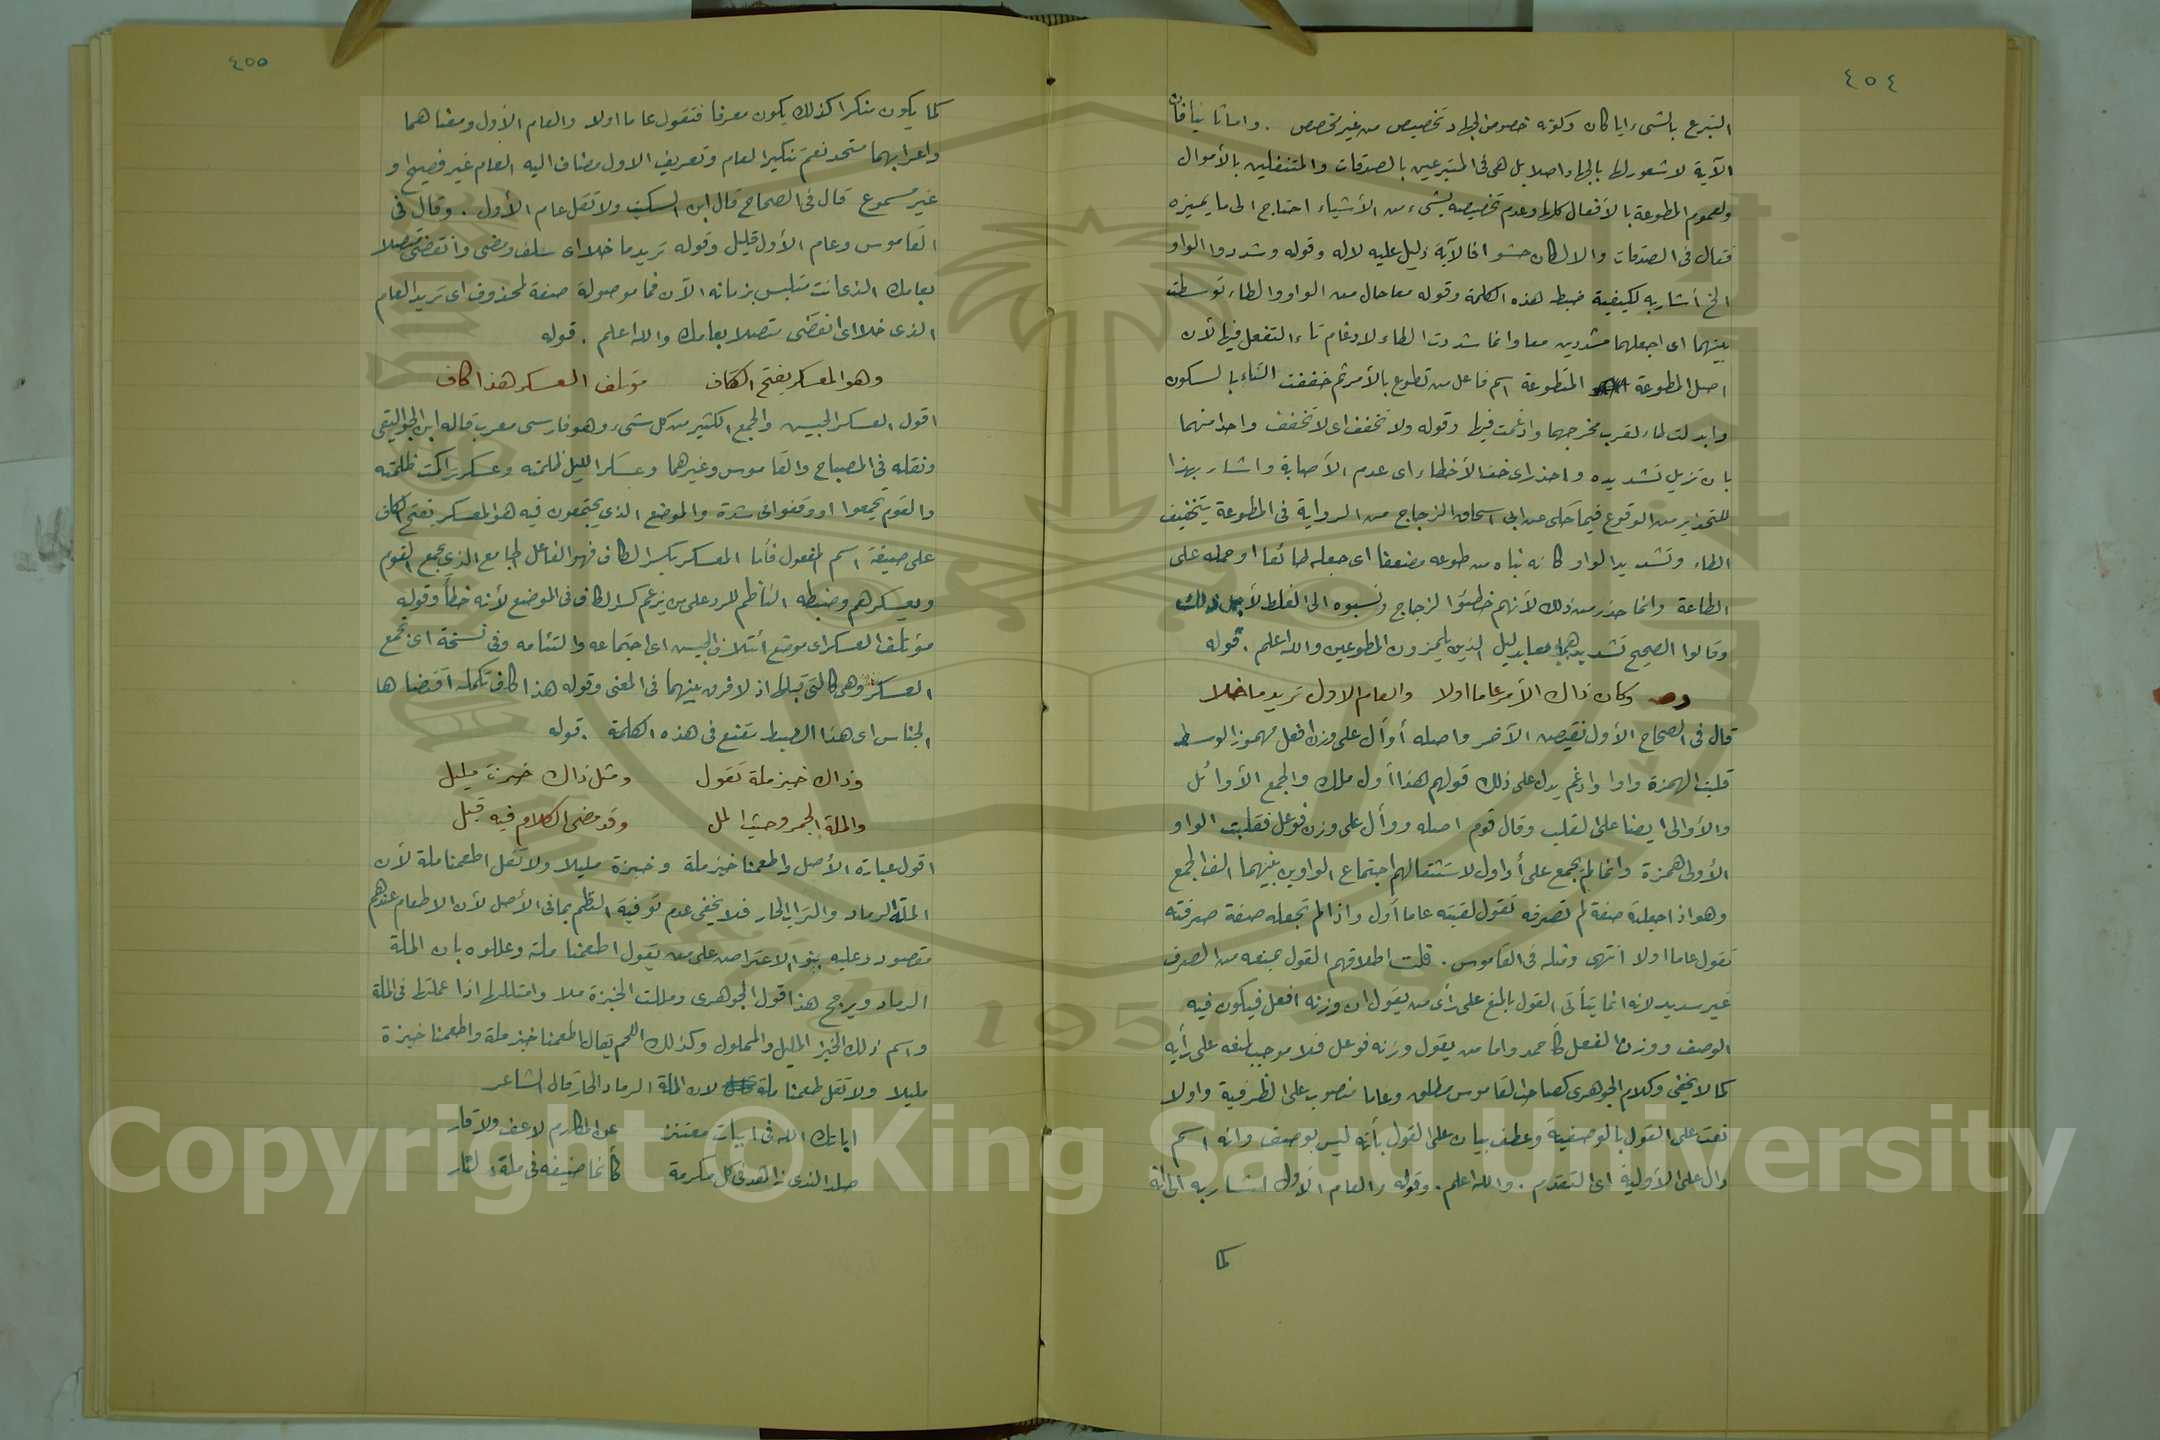 ٤٥٤
التبرع بالشيء ايا كان وكونه خصوص الجهاد تخصيص من غير مخصص . واما ثانيا فان
الآية لا شعور لها بالجهاد اصلا بل هي في المتبرعين بالصدقات والمتنفلين بالأموال
ولعموم المطوعة بالأفعال كلها وعدم تخصيصه بشيء من الأشياء احتاج الى ما يميزه
فقال في الصدقات والا لكان حشوا فالآية دليل عليه لاله وقوله وشددوا الواو
الخ أشار به لكيفية ضبط هذه الكلمة وقوله معا حال من الواو والطاء توسطت
بينهما اى اجعلهما مشددين معا وانما شددت الطاء لادغام تاء التفعل فيها لأن
اصل المطوعة المتطوعة اسم فاعل من تطوع بالأمر ثم خففت التاء بالسكون
وابدلت طاء لقرب مخرجهما وادغمت فيها وقوله ولا تخفف اى لا تخفف واحدا منهما
بان تزيل تشديده واحذر اى خف الأخطاء اى عدم الاصابة واشار بهذا
للتحذير من الوقوع فيما حكى عن ابى اسحاق الزجاج من الرواية في المطوعة بتخفيف
الطاء وتشديد الواو كانه بناه من طوعه مضعفا اى جعله طائعا او حمله على
الطاعة وانما حذر من ذلك لأنهم خطئوا الزجاج ونسبوه الى الغلط لأجل ذلك
وقالوا الصحيح تشديدهما معا بدليل الذين يلمزون المطوعين والله اعلم . قوله
وكان ذاك الأمر عاما اولا والعام الاول تريد ما خلا
قال في الصحاح الأول نقيض الآخر واصله أوأل على وزن افعل مهموز الوسط
قلبت الهمزة واوا وادغم يدل على ذلك قولهم هذا أول منك والجمع الأوائل
والأوالى ايضا على القلب وقال قوم اصله ووأل على وزن فوعل فقلبت الواو
الأولى همزة وانما لم يجمع على أواول لاستثقالهم اجتماع الواوين بينهما الف الجمع
وهو اذا جعلته صفة لم تصرفه تقول لقيته عاما أول واذا لم تجعله صفة صرفته
تقول عاما اولا انتهى ومثله في القاموس . قلت اطلاقهم القول بمنعه من الصرف
غير سديد لانه انما يتأتى القول بالمنع على رأى من يقول ان وزنه افعل فيكون فيه
الوصف ووزن الفعل كأحمد واما من يقول وزنه فوعل فلا موجب لمنعه على رأيه
كما لا يخفى وكلام الجوهرى كصاحب القاموس مطلق وعاما منصوب على الظرفية واولا
نعت على القول بالوصفية وعطف بيان على القول بأنه ليس بوصف وانه اسم
دال على الأولية اى التقدم . والله اعلم . وقوله والعام الأول اشار به الى انه
كما
٤٥٥
كما يكون منكرا كذلك يكون معرفا فتقول عاما اولا والعام الأول ومعناهما
واعرابهما متحد نعم تنكير العام وتعريف الاول مضاف اليه العام غير فصيح او
غير مسموع قال في الصحاح قال ابن السكيت ولا تقل عام الأول . وقال في
القاموس وعام الأول قليل وقوله تريد ما خلا اى سلف ومضى وانقضى متصلا
بعامك الذى انت متلبس بزمانه الآن فما موصولة صفة لمحذوف اى تريد العام
الذى خلا اى انقضى متصلا بعامك والله اعلم . قوله
وهو المعسكر بفتح الكاف مؤتلف العسكر هذا كاف
اقول العسكر الجيش والجمع الكثير من كل شىء وهو فارسى معرب قاله ابن الجواليقى
ونقله في المصباح والقاموس وغيرهما وعسكر الليل ظلمته وعسكر تراكمت ظلمته
والقوم تجمعوا او وقعوا في شدة والموضع الذى يجتمعون فيه هو المعسكر بفتح الكاف
على صيغة اسم المفعول فأما المعسكر بكسر الكاف فهو الفاعل الجامع الذى يجمع القوم
ويعسكرهم وضبطه الناظم للرد على من يزعم كسر الكاف في الموضع لأنه خطأ وقوله
مؤتلف العسكر اى موضع ائتلاف الجيش اى اجتماعه والتئامه وفى نسخة اى مجمع
العسكر وهى كالتى قبلها اذ لا فرق بينهما في المعنى وقوله هذا كاف تكملة اقتضاها
الجناس اى هذا الضبط مقنع في هذه الكلمة . قوله
وذاك خبز ملة تقول ومثل ذاك خبزة مليل
والملة الجمر وحيث المل وقد مضى الكلام فيه قبل
اقول عبارة الأصل واطعمنا خبز ملة وخبزة مليلا ولا تقل اطعمنا ملة لأن
الملة الرماد والتراب الحار فلا يخفى عدم توفية النظم بما في الأصل لأن الاطعام عندهم
مقصود وعليه بنوا الاعتراض على من يقول اطعمنا ملة وعللوه بان الملة
الرماد ويرجح هذا قول الجوهرى ومللت الخبزة ملا وامتللتها اذا عملتها في الملة
واسم ذلك الخبز المليل والمملول وكذلك اللحم يقال اطعمنا خبز ملة واطعمنا خبزة
مليلا ولا تقل اطعمنا ملة لان الملة الرماد الحار قال الشاعر
اباتك الله في ابيات معتنز عن المكارم لا عف ولا قار
صلد الندى زاهد في كل مكرمة كأنما ضيفه في ملة النار
1957
Copyright © King Saud University